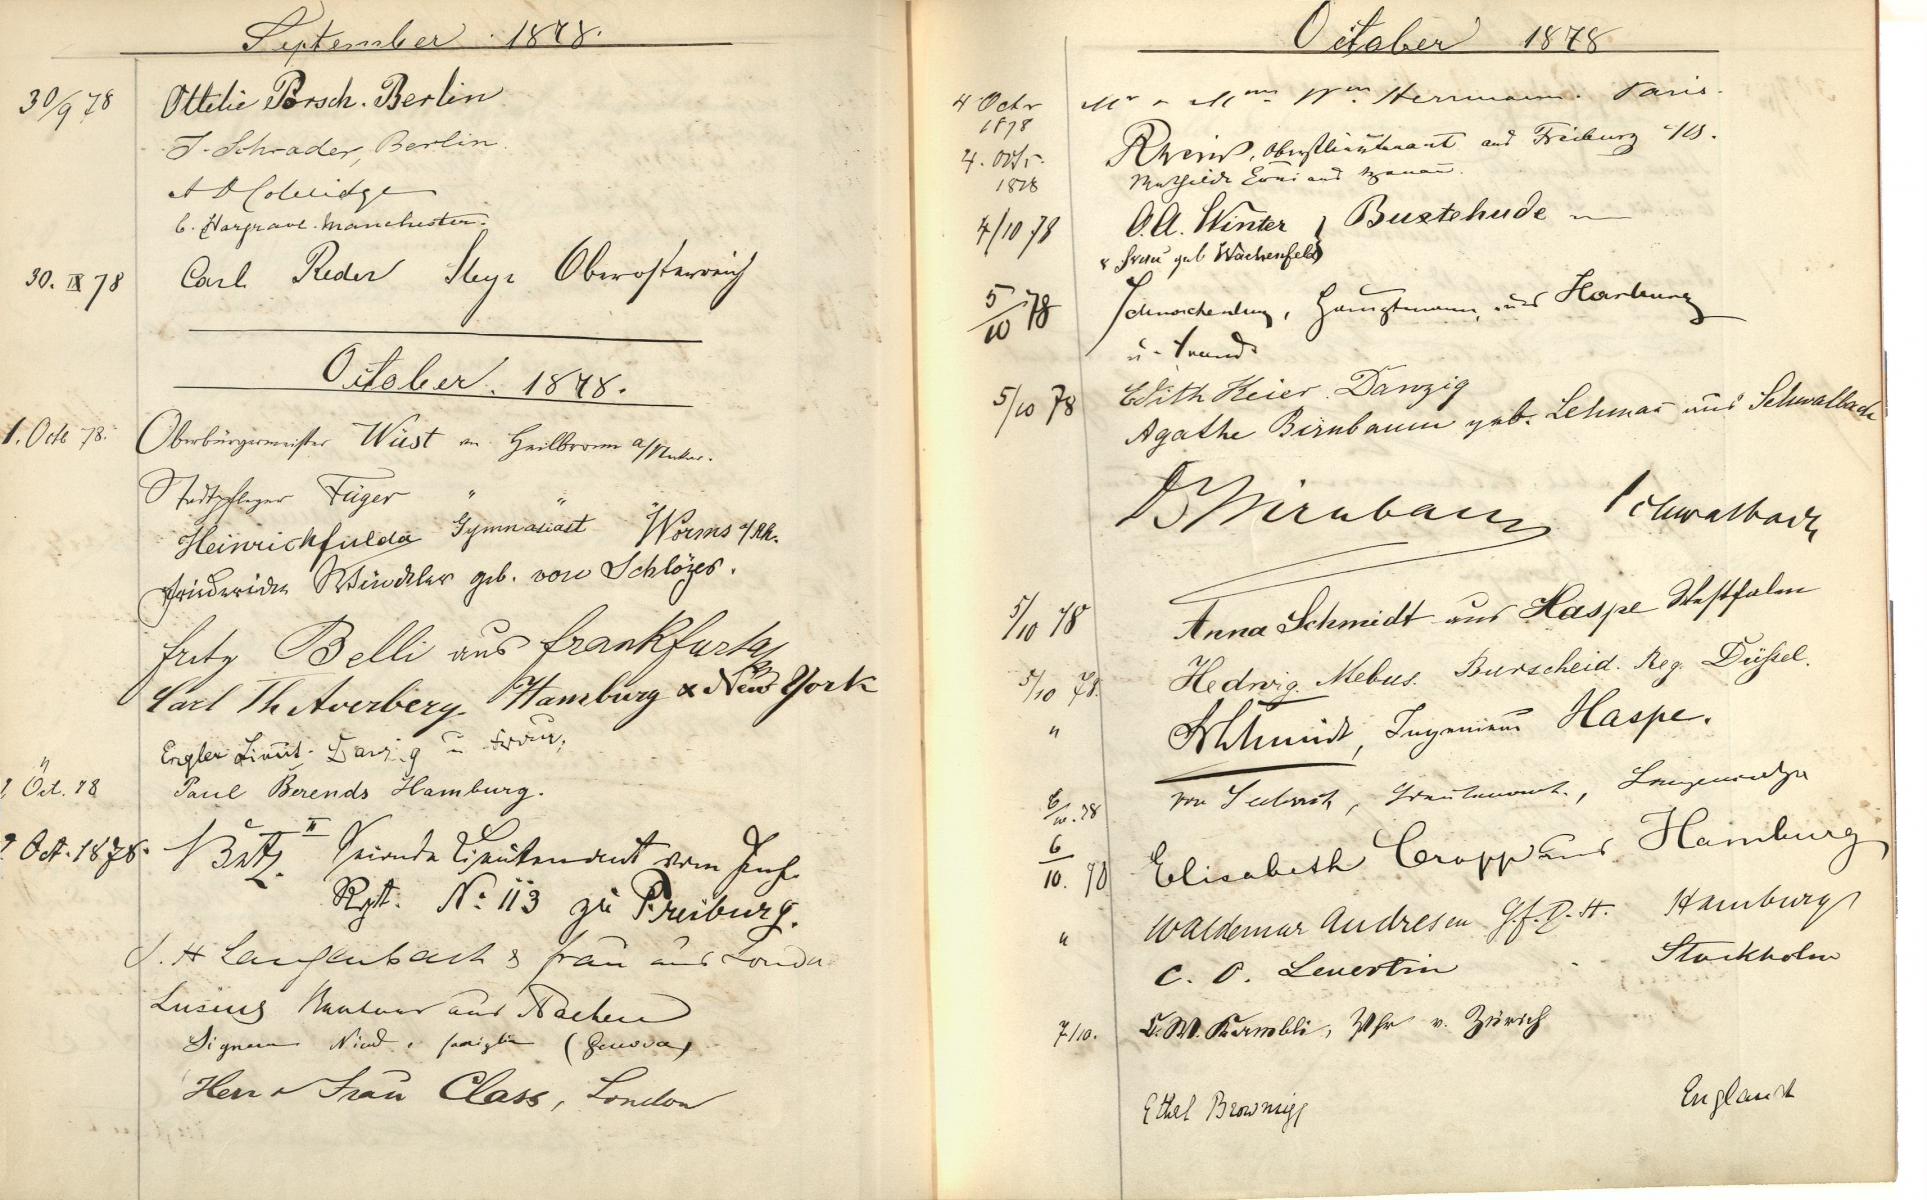 September 1878.
30/9 78 Ottilie Porsch. Berlin
J. Schrader, Berlin.
A D Coleridge
C. Hargrave. Manchester.
30. IX 78 Carl Reder Steyr Oberosterreich
October. 1878.
1. Octb 78. Oberbürgermeister Wüst Heilbronn a/Neckar.
Stadtpfleger Füger " "
Heinrich Fulda Gymnasiast Worms a/Rh.
Friederike geb. von Schlözer.
Fritz Belli aus Frankfurt a/M
Carl Th Averberg. Hamburg & New York
Engler Lieut. Danzig u Frau.
" Oct. 78 Paul Berends Hamburg.
2 Oct. 1878. Batz. II Seconde Lieutenant vom Inf.
Rgt. No 113 zu Freiburg.
J. H Langenbach & Frau aus London
Lusing aus Aachen
Signora famiglia (Genova)
Herr & Frau Class, London
October 1878
4 Octr 1878 Mr & Mme Wm. Herrmann. Paris.
4. Octr. 1878 Oberstlieutenant aus Freiburg i/B.
Mathilde
4/10 78 O. A. Winter } Buxtehude
& Frau geb Wachenfeld
5/10 78 Hauptmann, aus Harburg
u. Frau.
5/10 78 Edith Keier. Danzig
Agathe Birnbaum geb. Lehman aus Schwalbach
Birnbaum Schwalbach
5/10 78 Anna Schmidt aus Haspe Westfalen
5/10 78. Hedwig Mebus. Burscheid. Reg. Düssel.
" Schmidt, Ingenieur Haspe.
6/10. 78 von Lieutenant,
6/10. 78 Elisabeth Cropp aus Hamburg
" Waldemar Andresen Hamburg
C. O. Levertin Stockholm
7/10. C. W. Kambli, Pfr v. Zürich
Ethel Brownrigg England